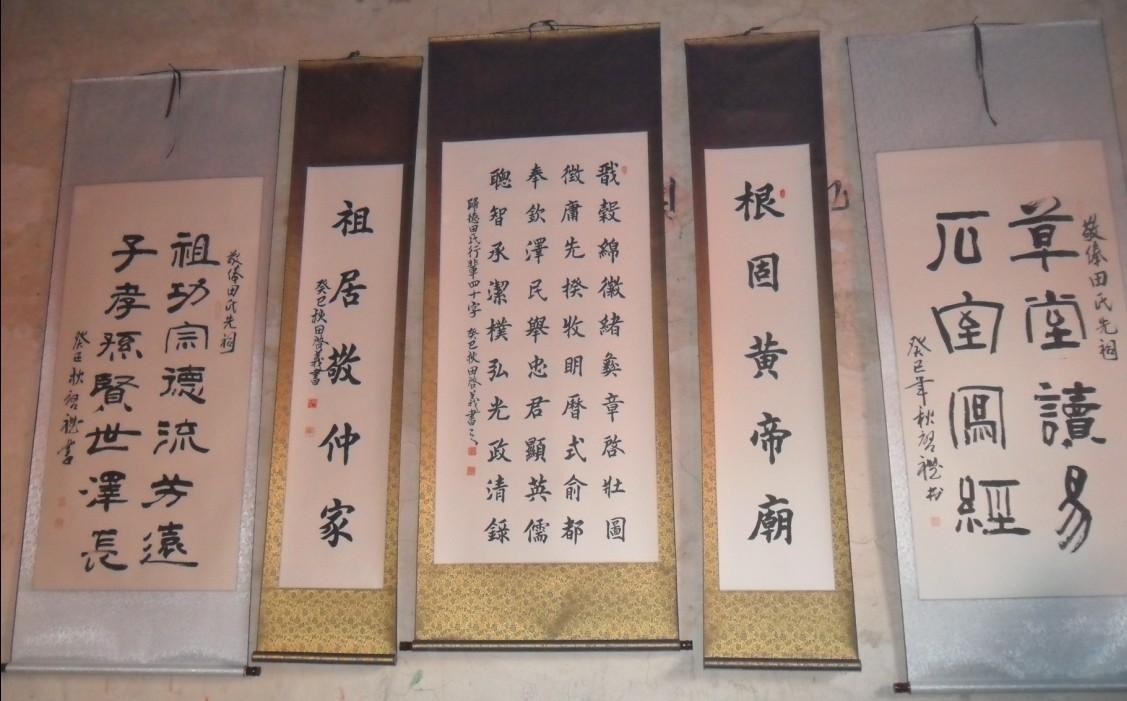 敬俸田氏先祠
草堂讀易
石室寫經
癸巳年秋啓禮书
根固黄帝廟
戩穀綿徽緒彝章啓壯圖
徵庸先揆牧明曆式俞都
奉欽澤民舉忠君顯英儒
聰智承潔樸弘光政清錄
歸德田氏行輩四十字 癸巳秋田啓義書
祖居敬仲家
癸巳秋田啓義書
敬俸田氏先祠
祖功宗德流芳遠
子孝孫賢世澤長
癸巳秋啓禮書